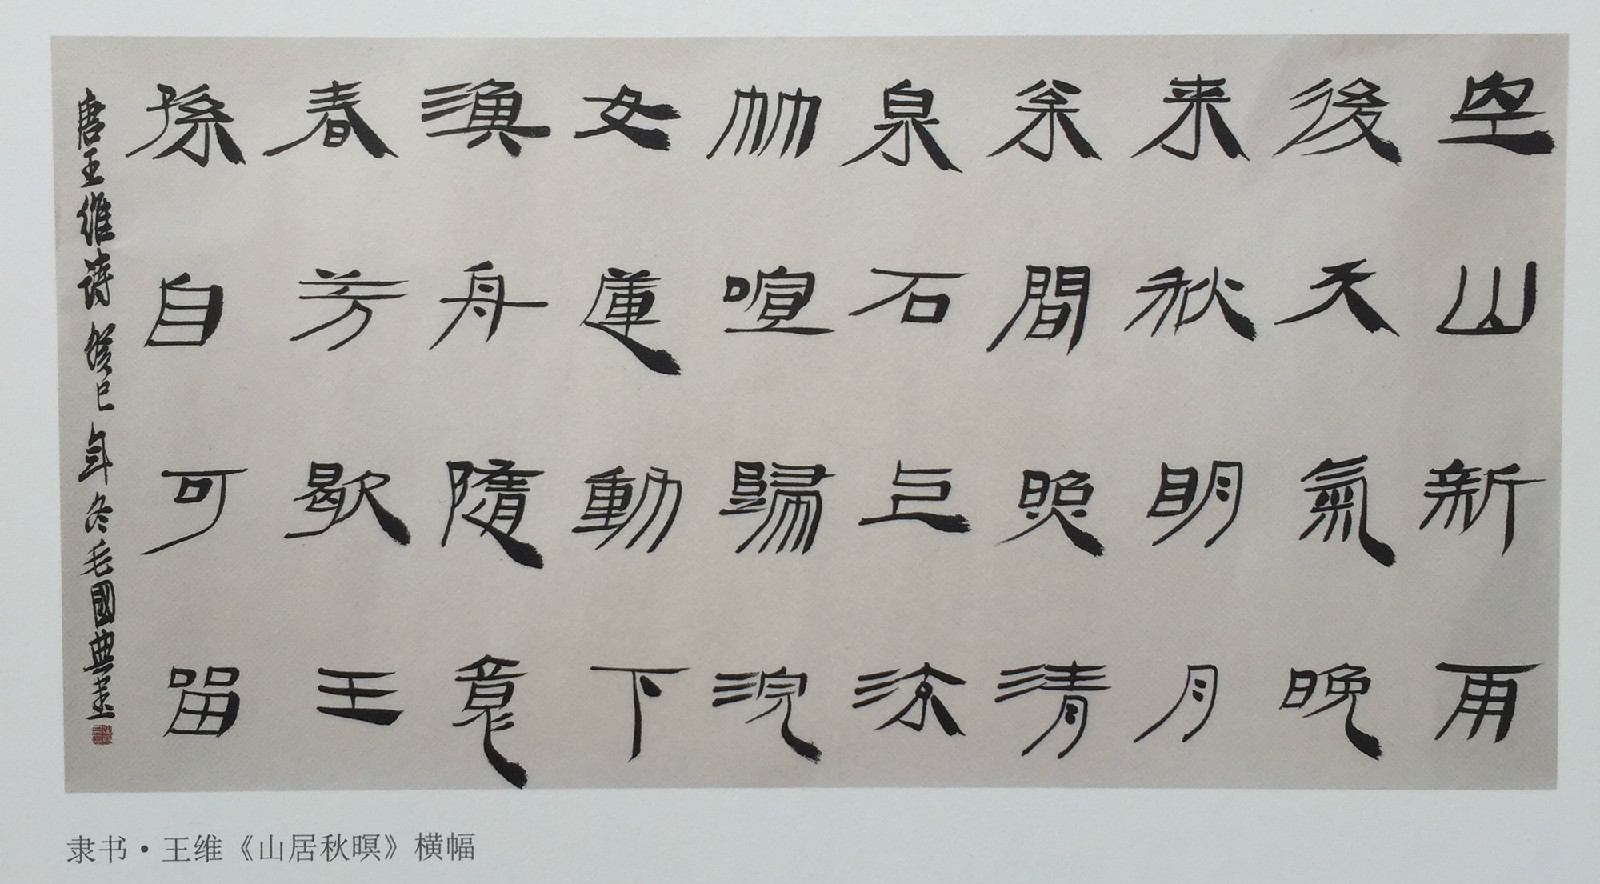 空山新雨
後天氣晚
来秋明月
枀間照清
泉石上流
竹喧歸浣
女蓮動下
漁舟隨意
春芳歇王
孫自可留
唐王維詩癸巳年冬毛國典書
隶书·王维《山居秋暝》横幅